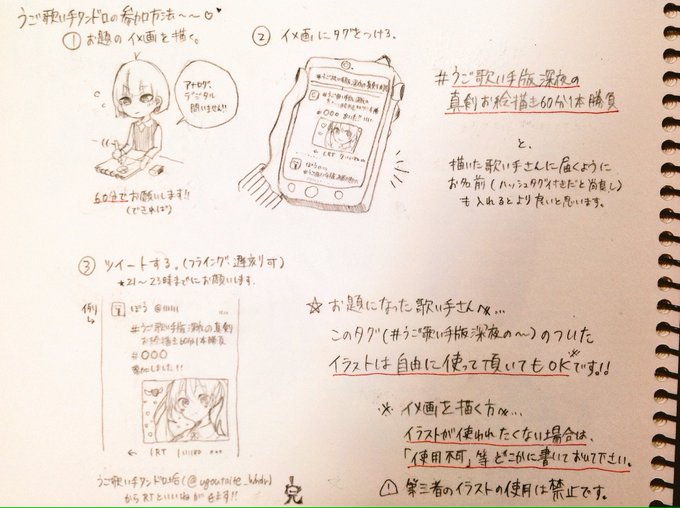 うご歌い手ワンドロの参加方法〜〜♡
① お題のイメ画を描く。
アナログ、
デジタル
問いません!!
60分でお願いします!!
(できれば)
② イメ画にタグをつける。
#うご歌い手版深夜の真剣
#〇〇〇
#うご歌い手版深夜の
真剣お絵描き60分1本勝負
と、
描いた歌い手さんに届くように
お名前(ハッシュタグ付きだと尚良し)
も入れるとより良いと思います。
③ ツイートする。(フライング、遅刻可)
*21〜23時までにお願いします。
例)
ぼう @111111
#うご歌い手版深夜の真剣
お絵描き60分1本勝負
#〇〇〇
参加しました!!
1RT
うご歌い手ワンドロ垢(@ugoutaite_
からRTといいねがきます!!
☆ お題になった歌い手さんへ...
このタグ(#うご歌い手版深夜の〜)のついた
イラストは自由に使って頂いてもOKです!!
※ イメ画を描く方へ...
イラストが使われたくない場合は、
「使用不可」等どこかに書いておいて下さい。
! 第三者のイラストの使用は禁止です。
完